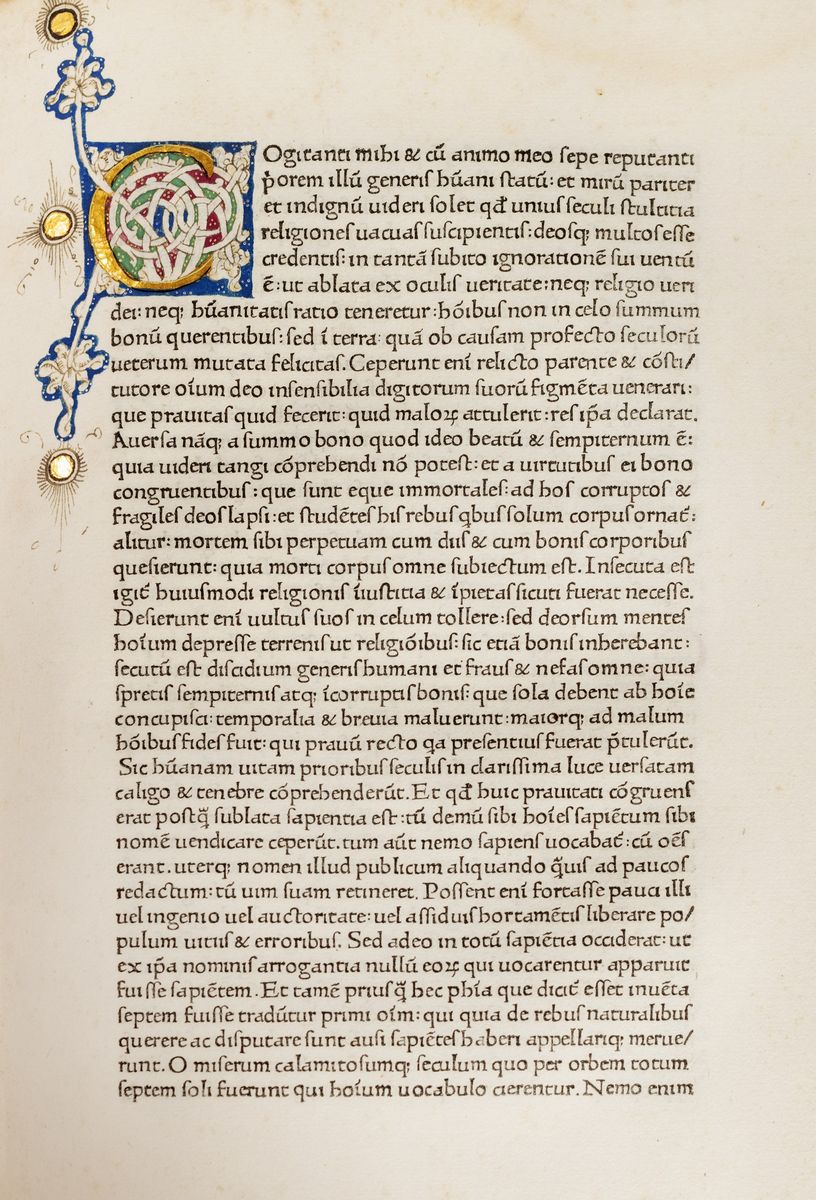 COgitanti mihi & cū animo meo sepe reputanti
p̄orem illū generis hūani statū: et mirū pariter
et indignū uideri solet qđ unius seculi stultitia
religiones uacuas suscipientis: deosq; multos esse
credentis: in tantā subito ignorationē sui uentū
ē: ut ablata ex oculis ueritate: neq; religio ueri
dei: neq; hūanitatis ratio teneretur: hōibus non in celo summum
bonū querentibus: sed ī terra: quā ob causam profecto seculorū
ueterum mutata felicitas. Ceperunt enī relicto parente & cōsti/
tutore oīum deo insensibilia digitorum suorū figmēta uenerari:
que prauitas quid fecerit: quid maloꝝ attulerit: res ip̄a declarat.
Auersa nāq; a summo bono quod ideo beatū & sempiternum ē:
quia uideri tangi cōprehendi nō potest: et a uirtutibus ei bono
congruentibus: que sunt eque immortales: ad hos corruptos &
fragiles deos lapsi: et studētes his rebus q̄bus solum corpus ornat̄:
alitur: mortem sibi perpetuam cum diis & cum bonis corporibus
quesierunt: quia morti corpus omne subiectum est. Insecuta est
igit̄ huiusmodi religionis īiustitia & īpietas sicuti fuerat necesse.
Desierunt enī uultus suos in celum tollere: sed deorsum mentes
hoīum depresse terrenis ut religiōibus: sic etiā bonis inherebant:
secutū est discidium generis humani et fraus & nefas omne: quia
spretis sempiternis atq; īcorruptis bonis: que sola debent ab hoīe
concupisci: temporalia & breuia maluerunt: maiorq; ad malum
hōibus fides fuit: qui prauū recto qa presentius fuerat p̄tulerūt.
Sic hūanam uitam prioribus seculis in clarissima luce uersatam
caligo & tenebre cōprehenderūt. Et qđ huic prauitati cōgruens
erat postq̄ sublata sapientia est: tū demū sibi hoīes sapiētum sibi
nomē uendicare ceperūt. tum aūt nemo sapiens uocabat̄: cū oēs
erant. uterq; nomen illud publicum aliquando q̄uis ad paucos
redactum: tū uim suam retineret. Possent enī fortasse pauci illi
uel ingenio uel auctoritate: uel assiduis hortamētis liberare po/
pulum uitiis & erroribus. Sed adeo in totū sapiētia occiderat: ut
ex ip̄a nominis arrogantia nullū eoꝝ qui uocarentur apparuit
fuisse sapiētem. Et tamē priusq̄ hec phīa que dicit̄ esset inuēta
septem fuisse tradūtur primi oīm: qui quia de rebus naturalibus
querere ac disputare sunt ausi sapiētes haberi appellariq; merue/
runt. O miserum calamitosumq; seculum quo per orbem totum
septem soli fuerunt qui hoīum uocabulo cierentur. Nemo enim